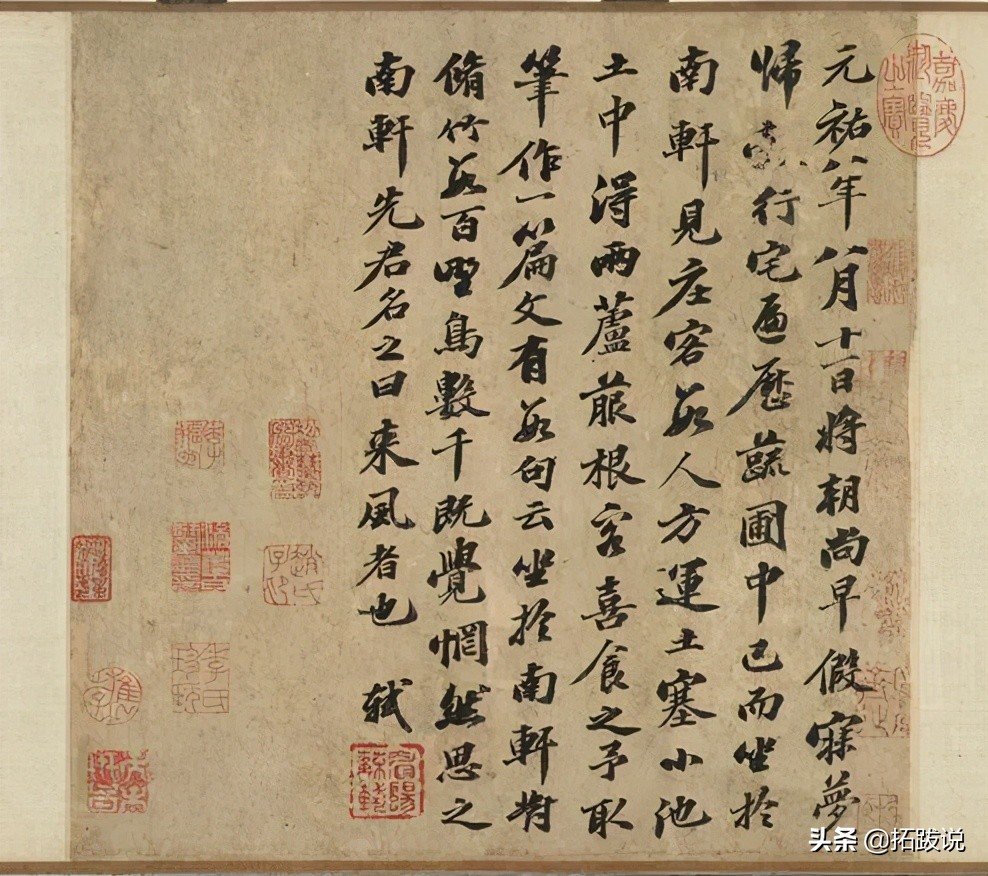 元祐八年八月十一日將朝尚早假寐夢
歸行宅遍歷蔬圃中已而坐於
南軒見庄客數人方運土塞小池
土中得兩蘆菔根客喜食之予取
筆作一篇文有數句云坐於南軒對
脩竹數百野鳥數千既覺惘然思之
南軒先君名之曰来風者也 軾
嘉慶御覽之寶
头条 @拓跋说